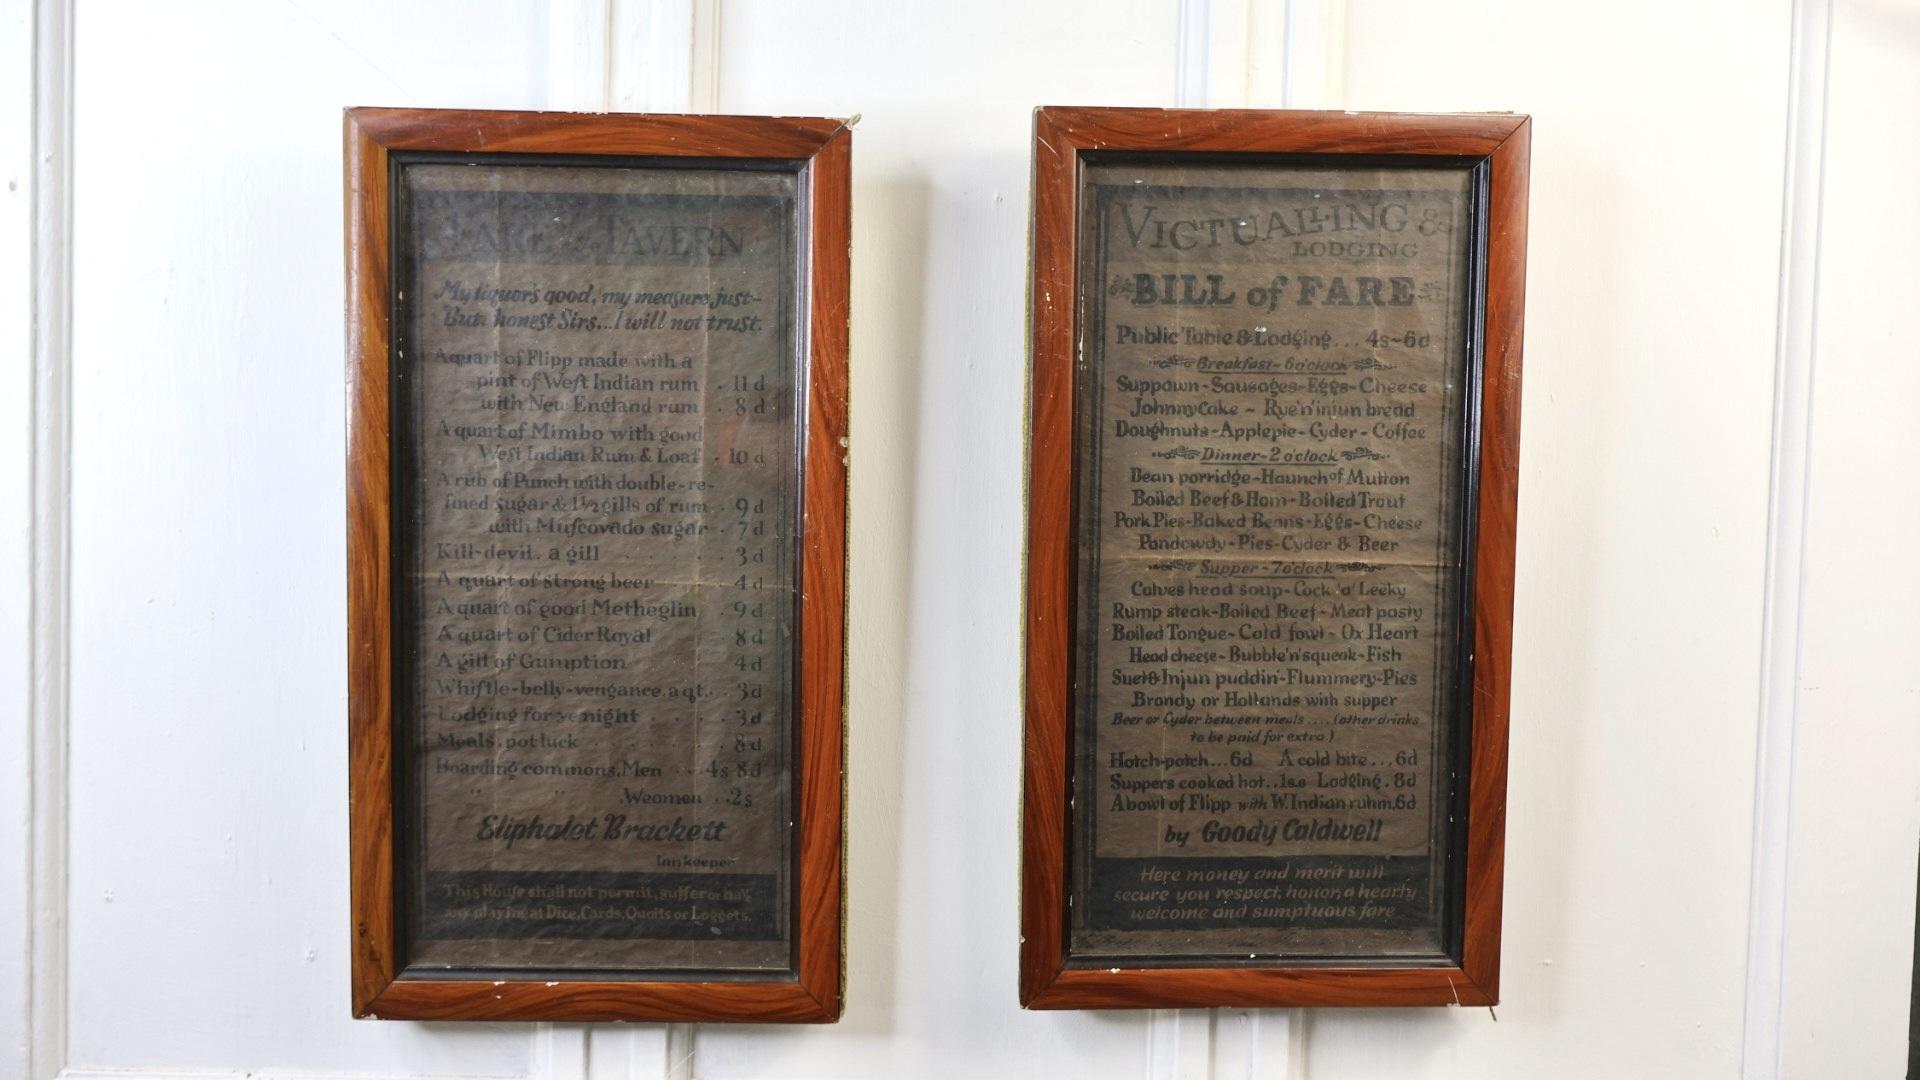 TAVERN
My liquor's good, my measure just~
But honest Sirs...I will not trust.
A quart of Flipp made with a
pint of West Indian rum . 11 d
with New England rum . 8 d
A quart of Mimbo with good
West Indian Rum & Loaf . 10 d
A rub of Punch with double-re-
fined sugar & 1½ gills of rum . 9 d
with Muscovado sugar . 7 d
Kill-devil, a gill . . . . 3 d
A quart of strong beer . . . 4 d
A quart of good Metheglin . 9 d
A quart of Cider Royal . 8 d
A gill of Gumption 4 d
Whistle-belly-vengance, a qt. . 3d
Lodging for ye night . . . . 3d
Meals, pot luck . . . . . 8 d
Boarding commons, Men . . 4s 8d
" " , Weomen . . 2s
Eliphalet Brackett
Innkeeper
This House shall not permit, suffer or have
any playing at Dice, Cards, Quoits or Loggets.
VICTUALLING &
LODGING
BILL of FARE
Public Table & Lodging... 4s~6d
Breakfast~6 o'clock
Suppawn~Sausages~Eggs~Cheese
JohnnyCake ~ Rye'n'injun bread
Doughnuts~Applepie~Cyder~Coffee
Dinner~2 o'clock
Bean porridge~Haunch of Mutton
Boiled Beef & Ham~Boiled Trout
Pork Pies~Baked Beans~Eggs~Cheese
Pandowdy~Pies~Cyder & Beer
Supper~7 o'clock
Calves head soup~Cock 'a' Leeky
Rump steak~Boiled Beef~Meat pasty
Boiled Tongue~Cold fowl~Ox Heart
Head cheese~Bubble'n'squeak~Fish
Suet & Injun puddin'~Flummery~Pies
Brandy or Hollands with supper
Beer or Cyder between meals .... (other drinks
to be paid for extra)
Hotch-potch...6d A cold bite...6d
Suppers cooked hot.. Lodging. 8d
A bowl of Flipp with W. Indian ruhm. 6d
by Goody Caldwell
Here money and merit will
secure you respect, honor, a hearty
welcome and sumptuous fare